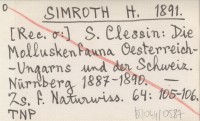 o
SIMROTH H. 1891.
[Rec. o:] S. Clessin: Die
Molluskenfauna Oesterreich-
-Ungarns und der Schweiz.
Nürnberg 1887-1890. —
Zs. f. Naturwiss. 64: 105-106.
TNP